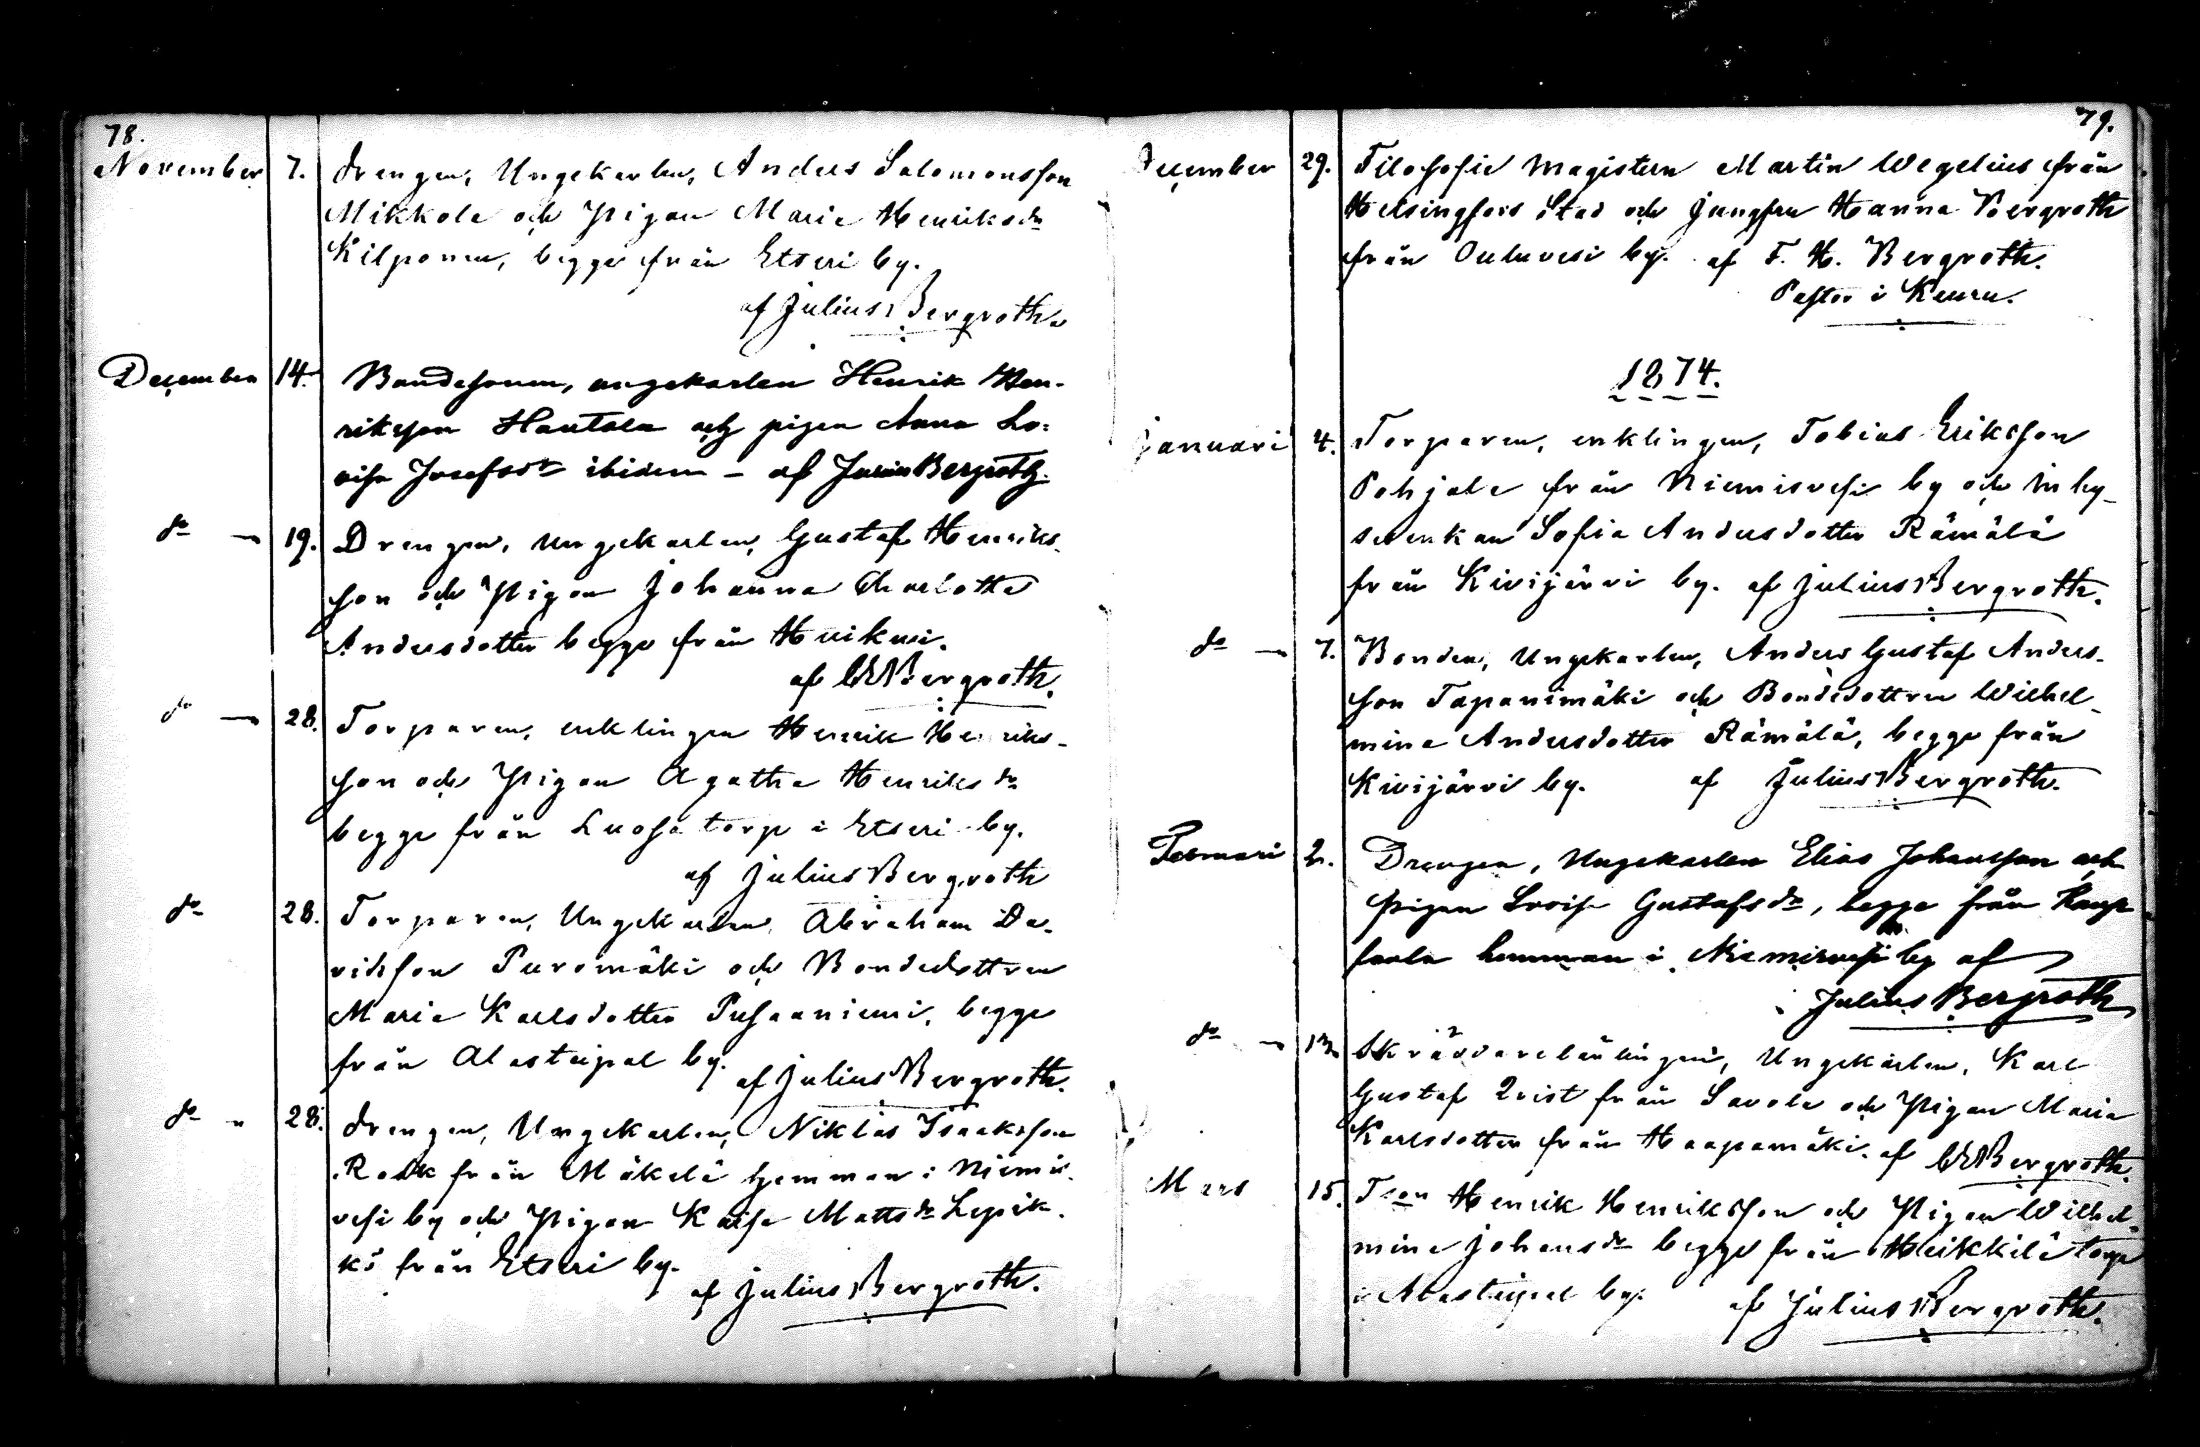 78.
November 7. Drengen, Ungekarlen, Anders Salomonsson
Mikkola och Pigan Maria Henriksdr
Kilponen, begge från Etseri by.
af Julius Bergroth.
December 14. Bondesonen, ungekarlen Henrik Hen-
riksson Hautala och pigan Anna Lo-
visa Josefsdr ibidem – af Julius Bergroth.
do — 19. Drengen, Ungekarlen, Gustaf Henriks-
son och Pigan Johanna Charlotta
Andersdotter begge från
af Bergroth.
do — 28. Torparen, enklingen Henrik Henriks-
son och Pigan Agatha Henriksdr
begge från Luoja torp i Etseri by.
af Julius Bergroth
do 28. Torparen, Ungekarlen, Abraham Da-
vidsson Puromäki och Bondedottren
Maria Karlsdotter Pusaaniemi, begge
från Alastaipal by.
af Julius Bergroth.
do " 28. Drengen, Ungekarlen, Niklas Isaksson
Rask från Mäkelä hemman i Niemis-
vesi by och Pigan Kaisa Mattsdr Lepik-
kö från Etseri by.
af Julius Bergroth.
79.
December 29. Filosofie Magistern Martin Wegelius från
Helsingfors Stad och Jungfru Hanna Bergroth
från Ouluvesi by. af F. H. Bergroth.
Pastor i Keuru.
1874.
Januari 4. Torparen, enklingen, Tobias Eriksson
Pohjola från Niemisvesi by och Inhy-
seenkan Sofia Andersdotter Rämälä
från Kivijärvi by. af Julius Bergroth.
do — 7. Bonden, Ungekarlen, Anders Gustaf Anders-
son Tapanimäki och Bondedottren Wilhel-
mina Andersdotter Rämälä, begge från
Kivijärvi by. af Julius Bergroth.
Februari 2. Drengen, Ungekarlen Elias Johansson och
pigan Lovisa Gustafsdr, begge från
hemman i Niemisvesi by af
Julius Bergroth
do — 13. Skräddarelärlingen, Ungekarlen, Karl
Gustaf Qvist från Savola och Pigan Maria
Karlsdotter från Haapamäki. af Bergroth.
Mars 15. Tson Henrik Henriksson och Pigan Wilhel-
mina Johansdr begge från Heikkilä torp
i Alastaipal by. af Julius Bergroth.